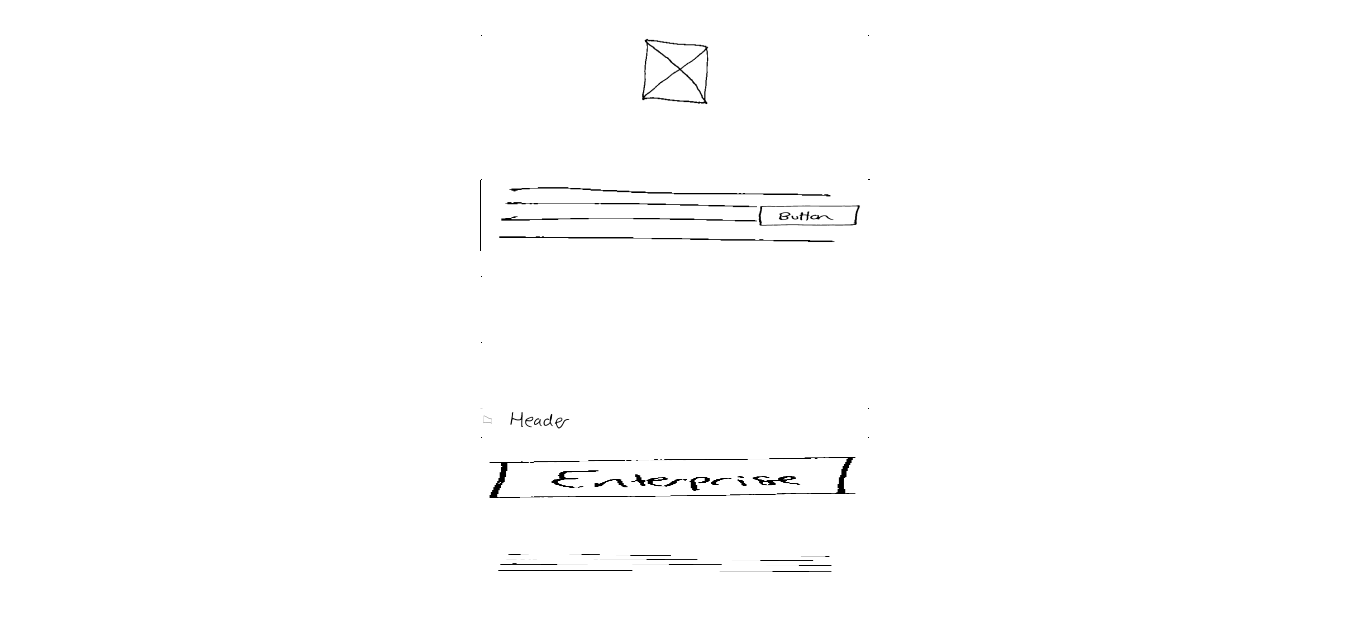 Button
Header
Enterprise